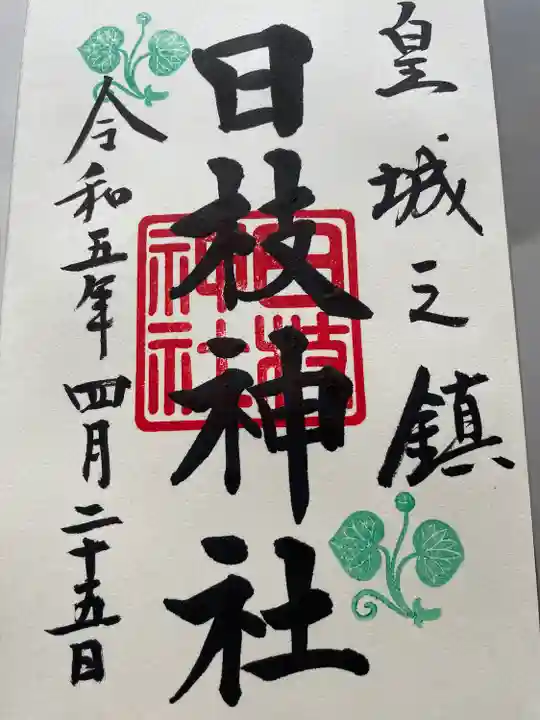 皇城之鎮
日枝神社
日枝神社
令和五年四月二十五日